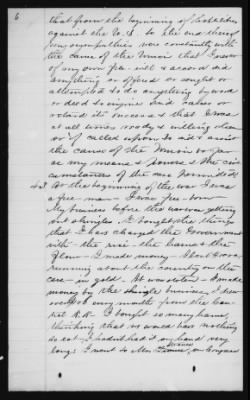 6
that from the beginning of hostilities
against the U.S. to the end thereof
my sympathies were constantly with
the cause of the Union that I never
of my own free will & accord did
anything or offered or sought or
attempted to do anything by word
or deed to injure said cause or
retard its success & that I was
at all times ready & willing when
called upon to aid & assist
the cause of the Union so far
as my means & powers & the cir-
cumstances of the case permitted
43 At the beginning of the war I was
a free man - I was free born
My business before the war was getting
out shingles. I bought the things
that I have charged the Government
with - the - the hams & the
flour - I made money - I lost
running about the country on the
cars - in gold. It was stolen - I made
money by the shingle business, I drew
every month from the Cen-
tral R.R. I bought so many hams,
thinking that we would have nothing
to eat - I hadn't had it on hand very
long. I went to Men as long as